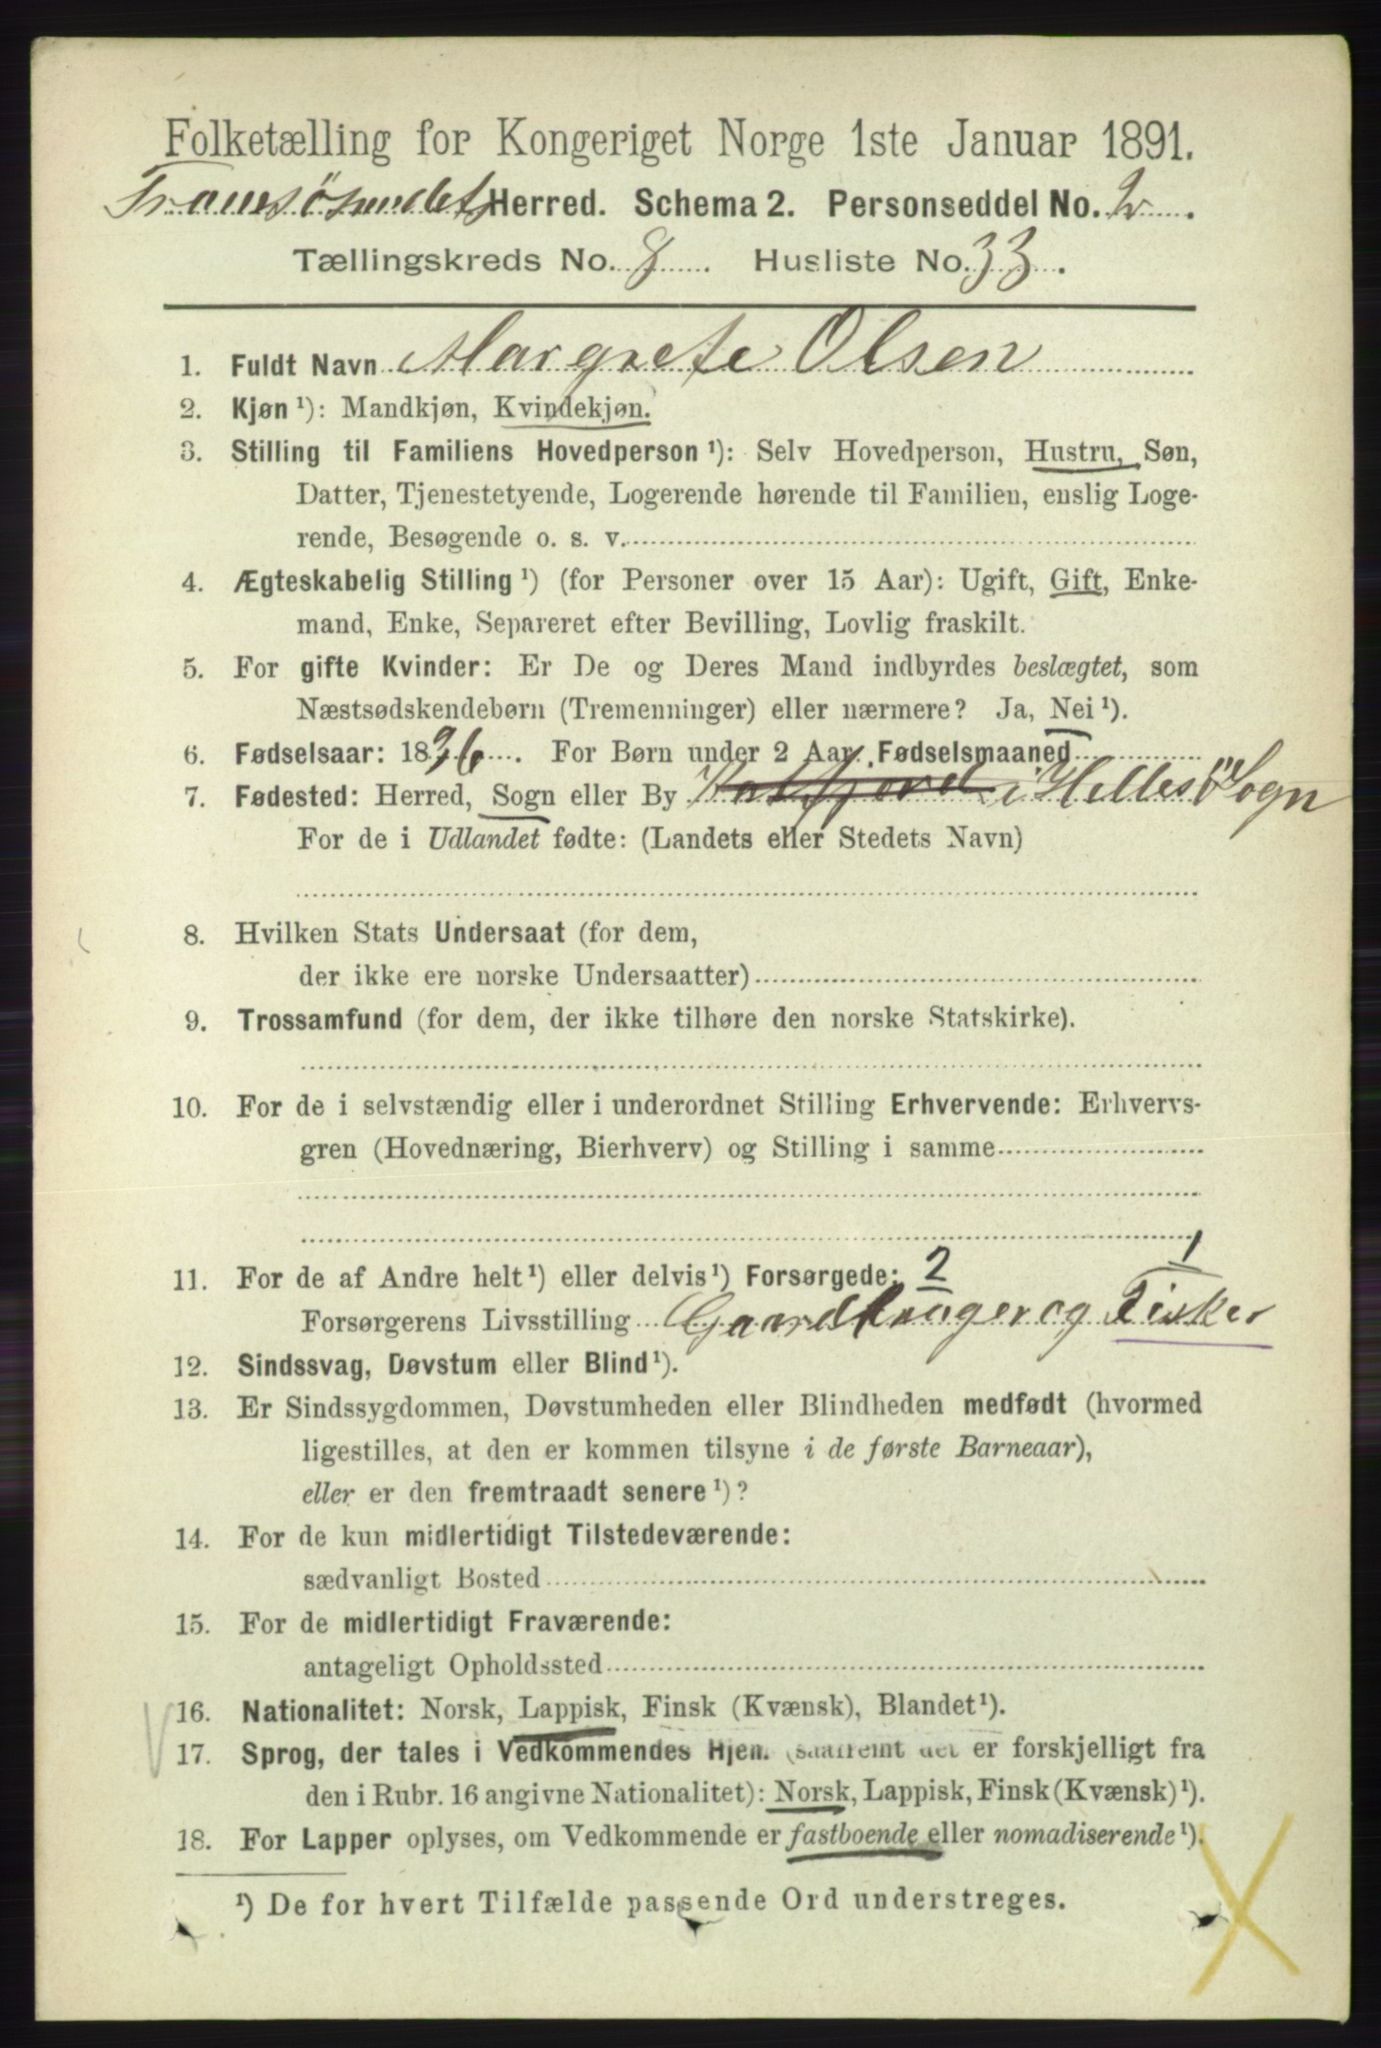 Folketælling for Kongeriget Norge 1ste Januar 1891.
Tromsösundets Herred. Schema 2. Personseddel No. 2.
Tællingskreds No. 8. Husliste No. 33.
1. Fuldt Navn Margrete Olsen
2. Kjøn ¹): Mandkjøn, Kvindekjøn.
3. Stilling til Familiens Hovedperson ¹): Selv Hovedperson, Hustru, Søn,
Datter, Tjenestetyende, Logerende hørende til Familien, enslig Loge-
rende, Besøgende o. s. v.
4. Ægteskabelig Stilling ¹) (for Personer over 15 Aar): Ugift, Gift, Enke-
mand, Enke, Separeret efter Bevilling, Lovlig fraskilt.
5. For gifte Kvinder: Er De og Deres Mand indbyrdes beslægtet, som
Næstsødskendebørn (Tremenninger) eller nærmere? Ja, Nei ¹).
6. Fødselsaar: 1836. For Børn under 2 Aar, Fødselsmaaned
7. Fødested: Herred, Sogn eller By Katfjord i Hellesö Sogn
For de i Udlandet fødte: (Landets eller Stedets Navn)
8. Hvilken Stats Undersaat (for dem,
der ikke ere norske Undersaatter)
9. Trossamfund (for dem, der ikke tilhøre den norske Statskirke).
10. For de i selvstændig eller i underordnet Stilling Erhvervende: Erhvervs-
gren (Hovednæring, Bierhverv) og Stilling i samme
11. For de af Andre helt ¹) eller delvis ¹) Forsørgede: 2 1
Forsørgerens Livsstilling Gaardbruger og Fisker
12. Sindssvag, Døvstum eller Blind ¹).
13. Er Sindssygdommen, Døvstumheden eller Blindheden medfødt (hvormed
ligestilles, at den er kommen tilsyne i de første Barneaar),
eller er den fremtraadt senere ¹)?
14. For de kun midlertidigt Tilstedeværende:
sædvanligt Bosted
15. For de midlertidigt Fraværende:
antageligt Opholdssted
16. Nationalitet: Norsk, Lappisk, Finsk (Kvænsk), Blandet ¹).
17. Sprog, der tales i Vedkommendes Hjem (saafremt det er forskjelligt fra
den i Rubr. 16 angivne Nationalitet): Norsk, Lappisk, Finsk (Kvænsk) ¹).
18. For Lapper oplyses, om Vedkommende er fastboende eller nomadiserende ¹).
¹) De for hvert Tilfælde passende Ord understreges.